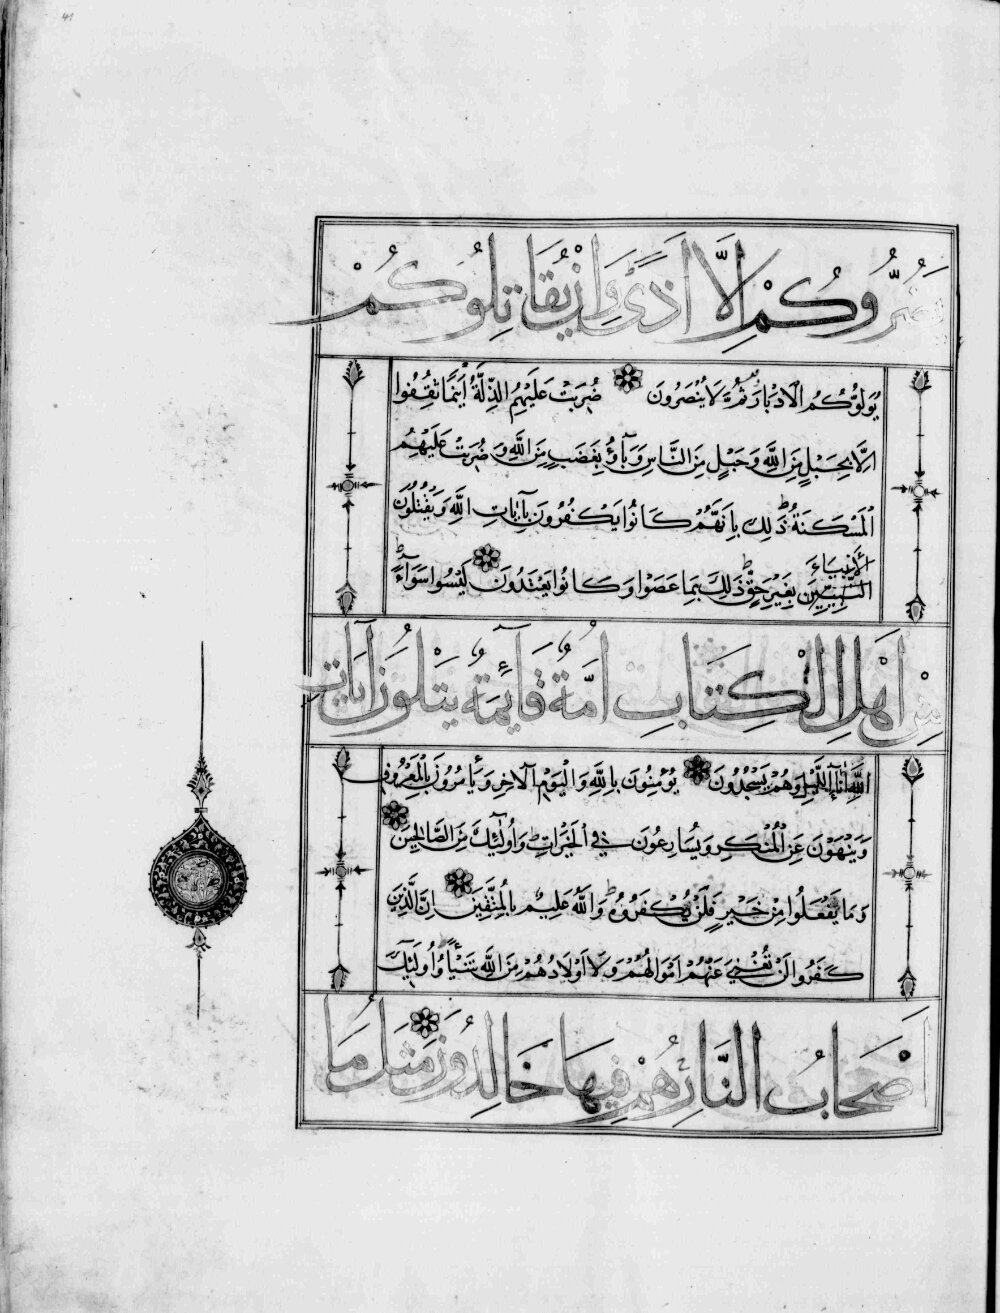 41
يَضُرُّوكُمْ اِلَّا اَذًى وَاِنْ يُقَاتِلُوكُمْ
يُوَلُّوكُمُ الْاَدْبَارَ ثُمَّ لَا يُنْصَرُونَ ضُرِبَتْ عَلَيْهِمُ الذِّلَّةُ اَيْنَمَا ثُقِفُوا
اِلَّا بِحَبْلٍ مِنَ اللّٰهِ وَحَبْلٍ مِنَ النَّاسِ وَبَآؤُ بِغَضَبٍ مِنَ اللّٰهِ وَضُرِبَتْ عَلَيْهِمُ
الْمَسْكَنَةُ ذٰلِكَ بِاَنَّهُمْ كَانُوا يَكْفُرُونَ بِآيَاتِ اللّٰهِ وَيَقْتُلُونَ
الْاَنْبِيَاءَ
النَّبِيِّينَ بِغَيْرِ حَقٍّ ذٰلِكَ بِمَا عَصَوْا وَكَانُوا يَعْتَدُونَ لَيْسُوا سَوَآءً
مِنْ اَهْلِ الْكِتَابِ اُمَّةٌ قَآئِمَةٌ يَتْلُونَ آيَاتِ
اللّٰهِ اٰنَآءَ اللَّيْلِ وَهُمْ يَسْجُدُونَ يُؤْمِنُونَ بِاللّٰهِ وَالْيَوْمِ الْاٰخِرِ وَيَأْمُرُونَ بِالْمَعْرُوفِ
وَيَنْهَوْنَ عَنِ الْمُنْكَرِ وَيُسَارِعُونَ فِي الْخَيْرَاتِ وَاُولٰٓئِكَ مِنَ الصَّالِحِينَ
وَمَا يَفْعَلُوا مِنْ خَيْرٍ فَلَنْ يُكْفَرُوهُ وَاللّٰهُ عَلِيمٌ بِالْمُتَّقِينَ اِنَّ الَّذِينَ
كَفَرُوا لَنْ تُغْنِيَ عَنْهُمْ اَمْوَالُهُمْ وَلَا اَوْلَادُهُمْ مِنَ اللّٰهِ شَيْئًا وَاُولٰٓئِكَ
اَصْحَابُ النَّارِ هُمْ فِيهَا خَالِدُونَ مَثَلُ مَا